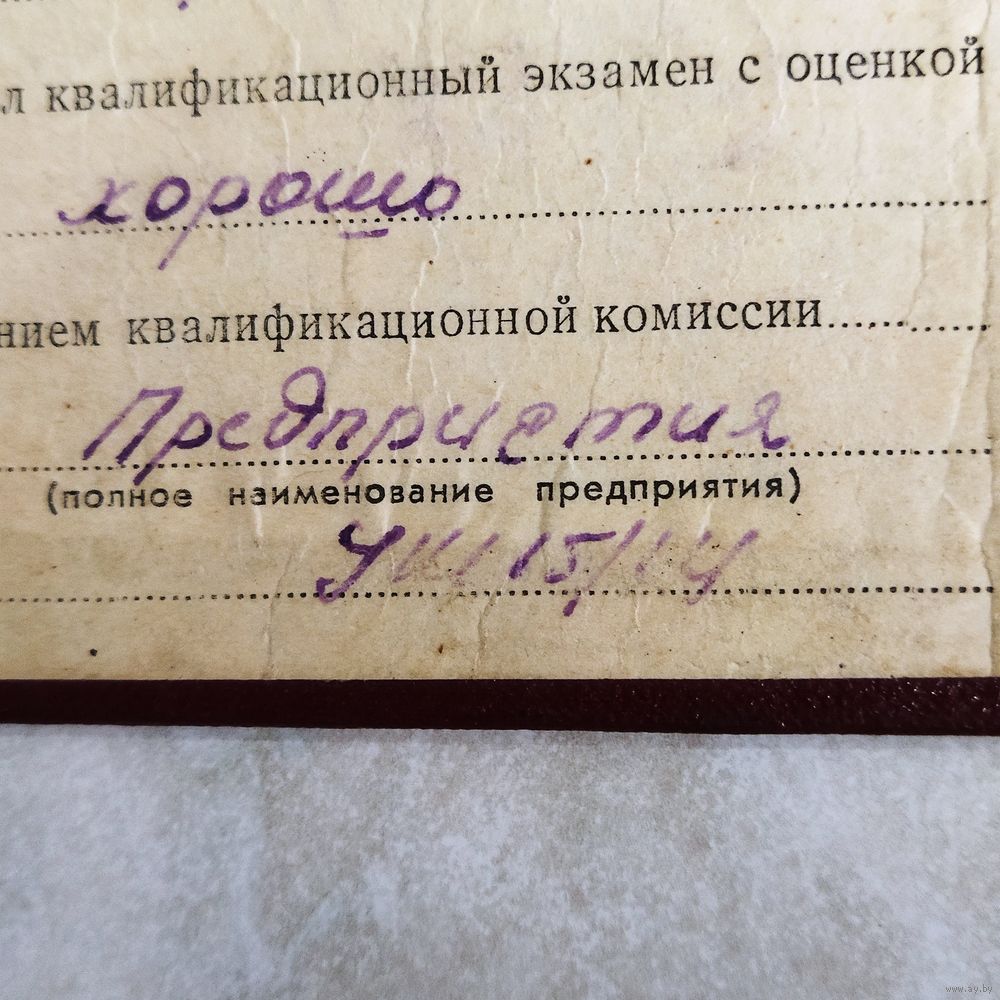 л квалификационный экзамен с оценкой
хорошо
нием квалификационной комиссии
Предприетия
(полное наименование предприятия)
www.ay.by